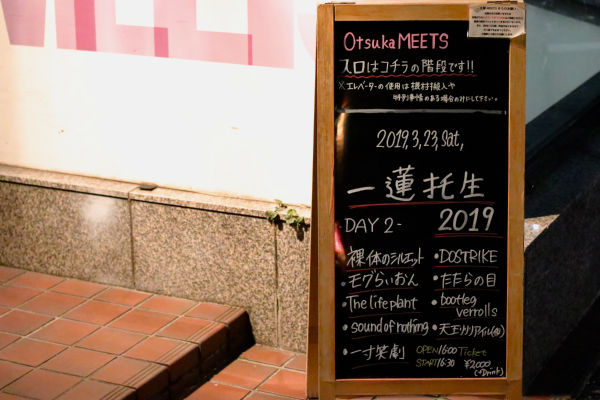 MEETS
Otsuka MEETS
入口はコチラの階段です!!
※エレベーターの使用は機材搬入や
特別事情のある場合のみにして下さい。
2019,3,23,Sat,
一蓮托生
-DAY 2- 2019
・裸体のシルエット
・DOSTRIKE
・モグらいおん
・たたらの目
・The life plant
・bootleg verrolls
・sound of nothing
・一寸笑劇
OPEN 16:00 Ticket
START 16:30 ¥2000
(+Drink)